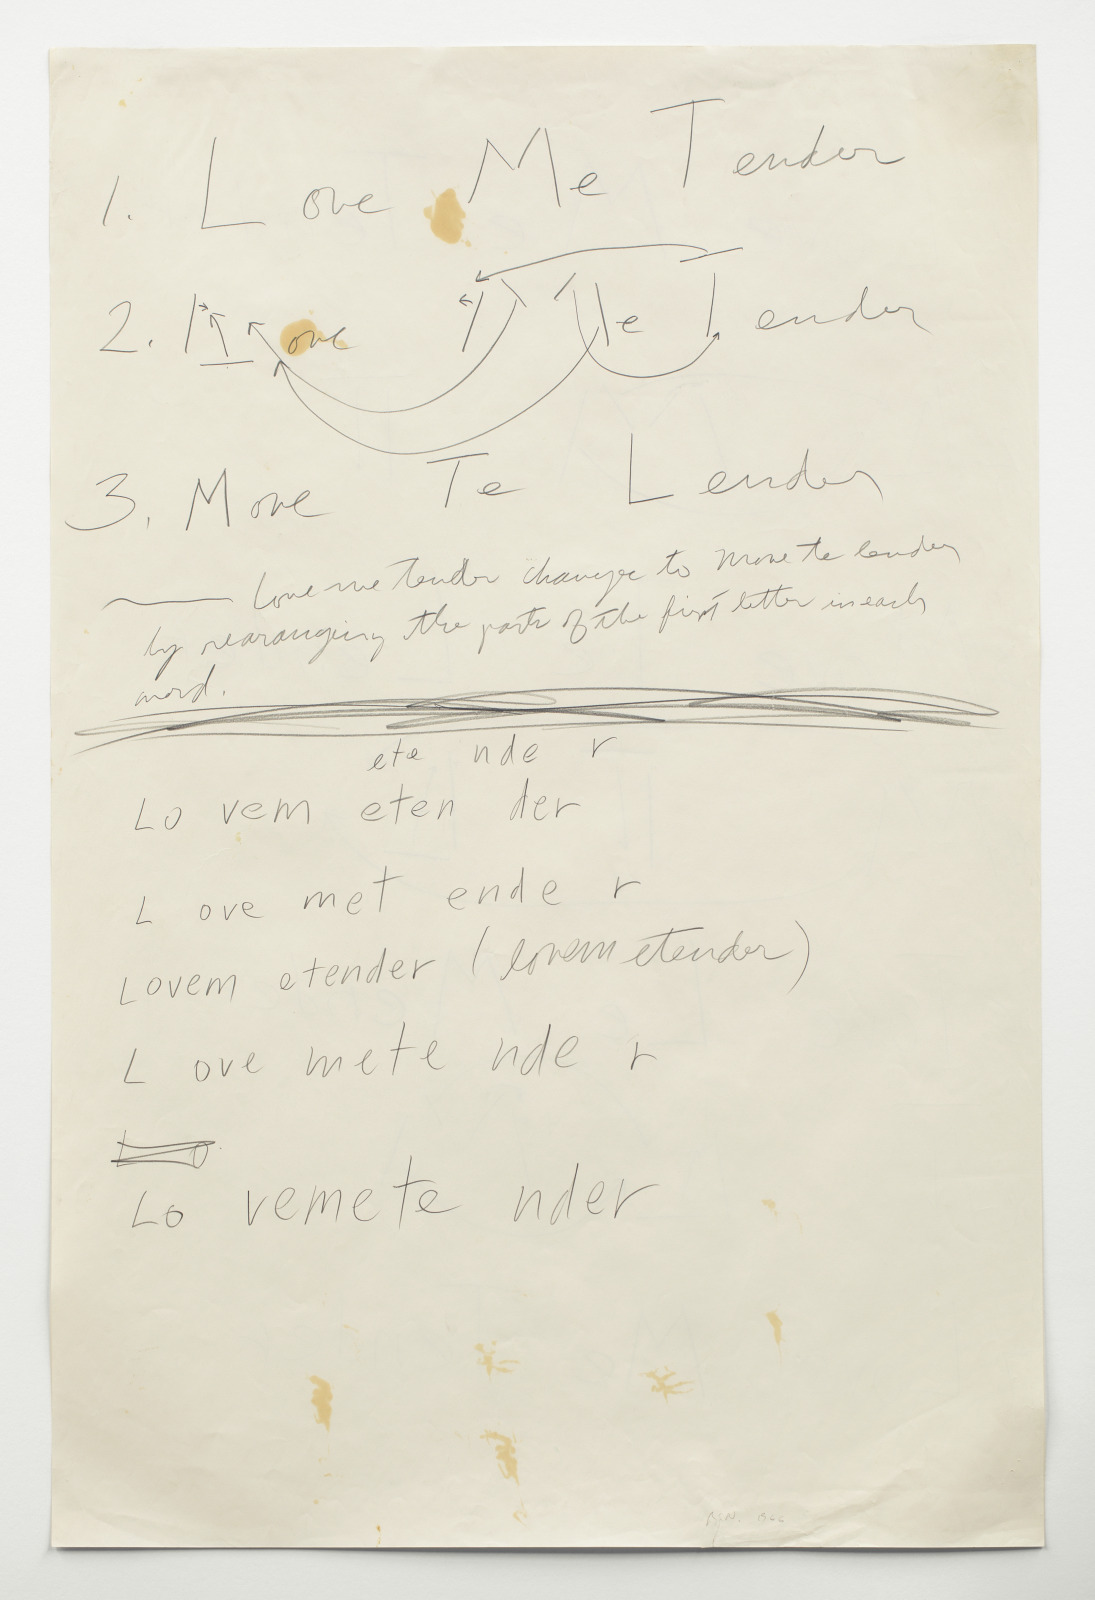 1. Love Me Tender
2. ove e Tender
3. Move Te Lender
Love me tender changes to Move te lender
by rearanging the parts of the first letter in each
word.
ete nde r
Lo vem eten der
L ove met ende r
Lovem etender (lovem etender)
L ove mete nde r
Lo
Lo vemete nder